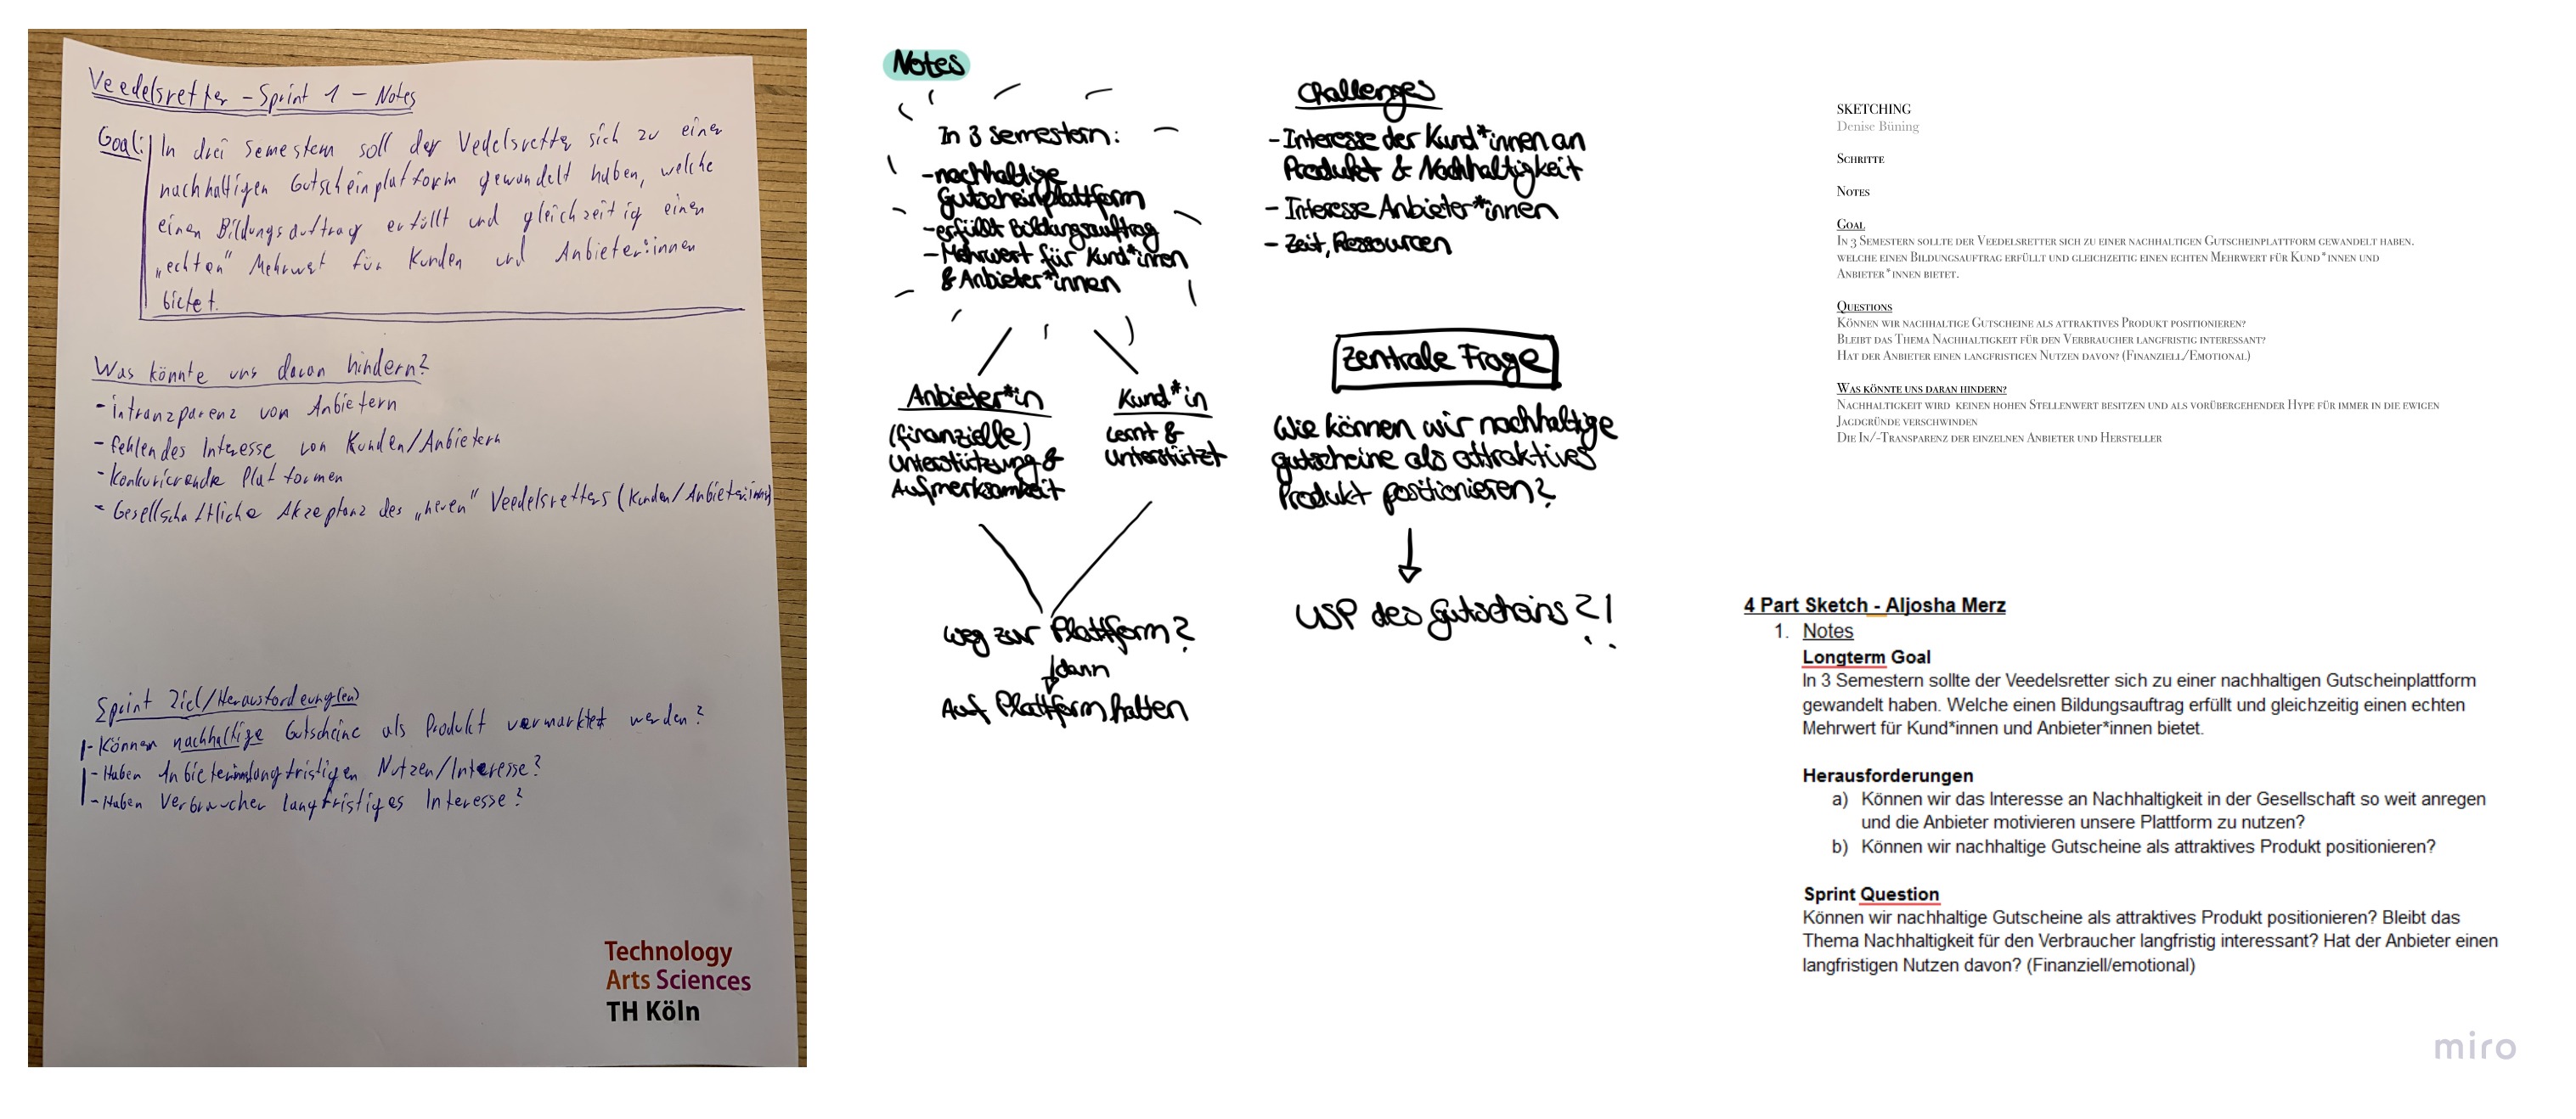 Veedelsretter – Sprint 1 – Notes
Goal: In drei Semestern soll der Vedelsretter sich zu einer
nachhaltigen Gutscheinplatform gewandelt haben, welche
einen Bildungsauftrag erfüllt und gleichzeitig einen
„echten" Mehrwert für Kunden und Anbieter:innen
bietet.
Was könnte uns daran hindern?
- intranzparenz von Anbietern
- fehlendes Interesse von Kunden/Anbietern
- Konkurierende Platformen
- Gesellschaftliche Akzeptanz des „neuen" Veedelsretters (Kunden/Anbieter:innen)
Sprint Ziel/Herausforderung(en)
- Können nachhaltige Gutscheine als Produkt vermarktet werden?
- Haben Anbieter:innen langfristigen Nutzen/Interesse?
- Haben Verbraucher langfristiges Interesse?
Technology
Arts Sciences
TH Köln
Notes
In 3 Semestern:
- nachhaltige
Gutscheinplattform
- erfüllt Bildungsauftrag
- Mehrwert für Kund*innen
& Anbieter*innen
Anbieter*in
(finanzielle)
Unterstützung &
Aufmerksamkeit
Kund*in
Lernt &
unterstützt
Weg zur Plattform?
dann
Auf Plattform halten
Challenges
- Interesse der Kund*innen an
Produkt & Nachhaltigkeit
- Interesse Anbieter*innen
- Zeit, Ressourcen
Zentrale Frage
Wie können wir nachhaltige
gutscheine als attraktives
Produkt positionieren?
USP des Gutscheins?!
SKETCHING
Denise Büning
SCHRITTE
NOTES
GOAL
IN 3 SEMESTERN SOLLTE DER VEEDELSRETTER SICH ZU EINER NACHHALTIGEN GUTSCHEINPLATTFORM GEWANDELT HABEN.
WELCHE EINEN BILDUNGSAUFTRAG ERFÜLLT UND GLEICHZEITIG EINEN ECHTEN MEHRWERT FÜR KUND*INNEN UND
ANBIETER*INNEN BIETET.
QUESTIONS
KÖNNEN WIR NACHHALTIGE GUTSCHEINE ALS ATTRAKTIVES PRODUKT POSITIONIEREN?
BLEIBT DAS THEMA NACHHALTIGKEIT FÜR DEN VERBRAUCHER LANGFRISTIG INTERESSANT?
HAT DER ANBIETER EINEN LANGFRISTIGEN NUTZEN DAVON? (FINANZIELL/EMOTIONAL)
WAS KÖNNTE UNS DARAN HINDERN?
NACHHALTIGKEIT WIRD KEINEN HOHEN STELLENWERT BESITZEN UND ALS VORÜBERGEHENDER HYPE FÜR IMMER IN DIE EWIGEN
JAGDGRÜNDE VERSCHWINDEN
DIE IN/-TRANSPARENZ DER EINZELNEN ANBIETER UND HERSTELLER
4 Part Sketch - Aljosha Merz
1. Notes
Longterm Goal
In 3 Semestern sollte der Veedelsretter sich zu einer nachhaltigen Gutscheinplattform
gewandelt haben. Welche einen Bildungsauftrag erfüllt und gleichzeitig einen echten
Mehrwert für Kund*innen und Anbieter*innen bietet.
Herausforderungen
a) Können wir das Interesse an Nachhaltigkeit in der Gesellschaft so weit anregen
und die Anbieter motivieren unsere Plattform zu nutzen?
b) Können wir nachhaltige Gutscheine als attraktives Produkt positionieren?
Sprint Question
Können wir nachhaltige Gutscheine als attraktives Produkt positionieren? Bleibt das
Thema Nachhaltigkeit für den Verbraucher langfristig interessant? Hat der Anbieter einen
langfristigen Nutzen davon? (Finanziell/emotional)
miro